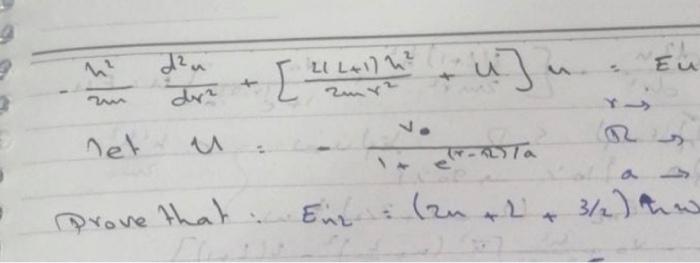 - ħ²/2m d²u/dr² + [ L(L+1) ħ²/2mr² + U ] u = Eu
let U = - V₀/1 + e^(r-R)/a
r →
R →
a →
Prove that : E_nL = (2n + L + 3/2) ħω